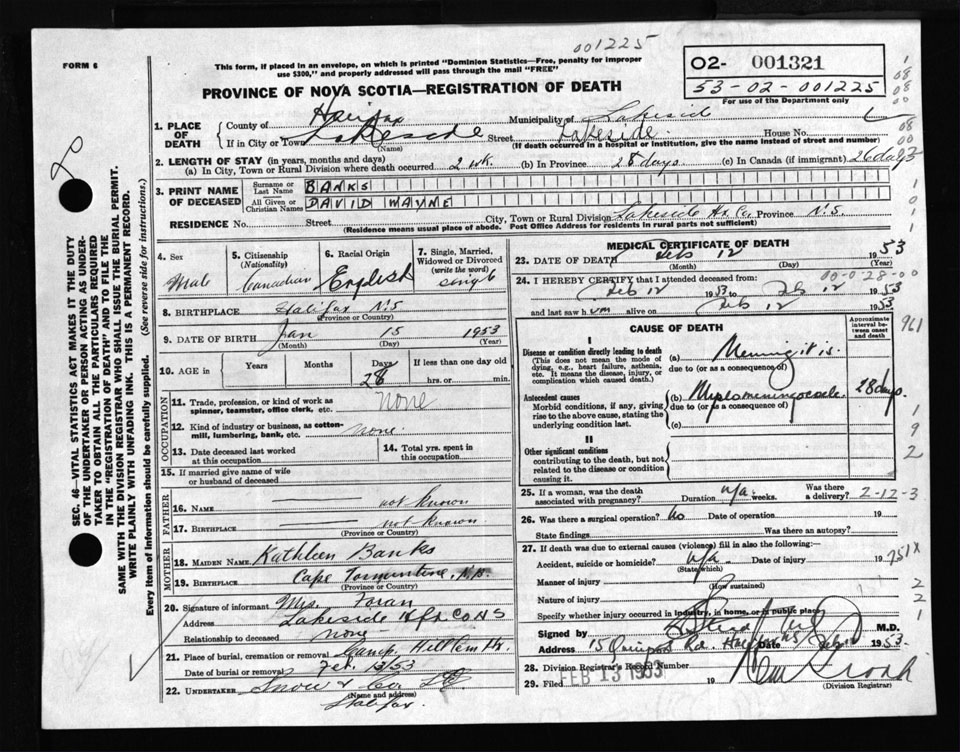 001225
FORM 6
This form, if placed in an envelope, on which is printed "Dominion Statistics—Free, penalty for improper
use $300," and properly addressed will pass through the mail "FREE"
O2- 001321
53-02-001225
For use of the Department only
PROVINCE OF NOVA SCOTIA—REGISTRATION OF DEATH
1. PLACE OF DEATH
County of Halifax Municipality of Lakeside
If in City or Town Lakeside Street Lakeside House No.
(Name) (If death occurred in a hospital or institution, give the name instead of street and number)
2. LENGTH OF STAY (in years, months and days)
(a) In City, Town or Rural Division where death occurred 2 wk. (b) In Province 28 days (c) In Canada (if immigrant) 28 days
3. PRINT NAME OF DECEASED
Surname or Last Name BANKS
All Given or Christian Names DAVID WAYNE
RESIDENCE No. Street City, Town or Rural Division Lakeside Hx. Co. Province N.S.
(Residence means usual place of abode. Post Office Address for residents in rural parts not sufficient)
4. Sex Male
5. Citizenship (Nationality) Canadian
6. Racial Origin English
7. Single, Married, Widowed or Divorced (write the word) single
8. BIRTHPLACE Halifax N.S
(Province or Country)
9. DATE OF BIRTH Jan 15 1953
(Month) (Day) (Year)
10. AGE in Years Months Days 28 If less than one day old hrs. or min.
OCCUPATION
11. Trade, profession, or kind of work as spinner, teamster, office clerk, etc. none
12. Kind of industry or business, as cotton-mill, lumbering, bank, etc. none.
13. Date deceased last worked at this occupation
14. Total yrs. spent in this occupation
15. If married give name of wife or husband of deceased
FATHER
16. NAME not known
17. BIRTHPLACE not known
(Province or Country)
MOTHER
18. MAIDEN NAME Kathleen Banks
19. BIRTHPLACE Cape Tormentine, N.B.
(Province or Country)
20. Signature of informant Mrs. Toran
Address Lakeside Hfx Co NS
Relationship to deceased none
21. Place of burial, cremation or removal Camp Hill Cem Hx.
Date of burial or removal Feb. 13/53
22. UNDERTAKER Snow & Co Ltd
(Name and address)
Halifax.
MEDICAL CERTIFICATE OF DEATH
23. DATE OF DEATH Feb 12 1953
(Month) (Day) (Year)
24. I HEREBY CERTIFY that I attended deceased from: 00-0-28-00
Feb 12 1953 to Feb 12 1953
and last saw him alive on Feb 12 1953.
CAUSE OF DEATH
Approximate interval between onset and death
I
Disease or condition directly leading to death
(This does not mean the mode of dying, e.g., heart failure, asthenia, etc. It means the disease, injury, or complication which caused death.)
(a) Meningitis.
due to (or as a consequence of)
Antecedent causes
Morbid conditions, if any, giving rise to the above cause, stating the underlying condition last.
(b) Myelomeningocele. 28 days.
due to (or as a consequence of)
(c)
II
Other significant conditions
contributing to the death, but not related to the disease or condition causing it.
961
25. If a woman, was the death associated with pregnancy? Duration n/a. weeks. Was there a delivery? 2-12-3
26. Was there a surgical operation? No Date of operation 19
State findings Was there an autopsy?
27. If death was due to external causes (violence) fill in also the following:—
Accident, suicide or homicide? n/a. Date of injury 19 751X
(State which)
Manner of injury
(How sustained)
Nature of injury
Specify whether injury occurred in industry, in home, or in public place
Signed by M.D.
Address 15 Quinpool Rd. Halifax NS 1953.
28. Division Registrar's Record Number
29. Filed FEB 13 1953 19
(Division Registrar)
SEC. 46—VITAL STATISTICS ACT MAKES IT THE DUTY
OF THE UNDERTAKER OR PERSON ACTING AS UNDER-
TAKER TO OBTAIN ALL THE PARTICULARS REQUIRED
IN THE "REGISTRATION OF DEATH" AND TO FILE THE
SAME WITH THE DIVISION REGISTRAR WHO SHALL ISSUE THE BURIAL PERMIT.
WRITE PLAINLY WITH UNFADING INK. THIS IS A PERMANENT RECORD.
Every item of information should be carefully supplied. (See reverse side for instructions.)